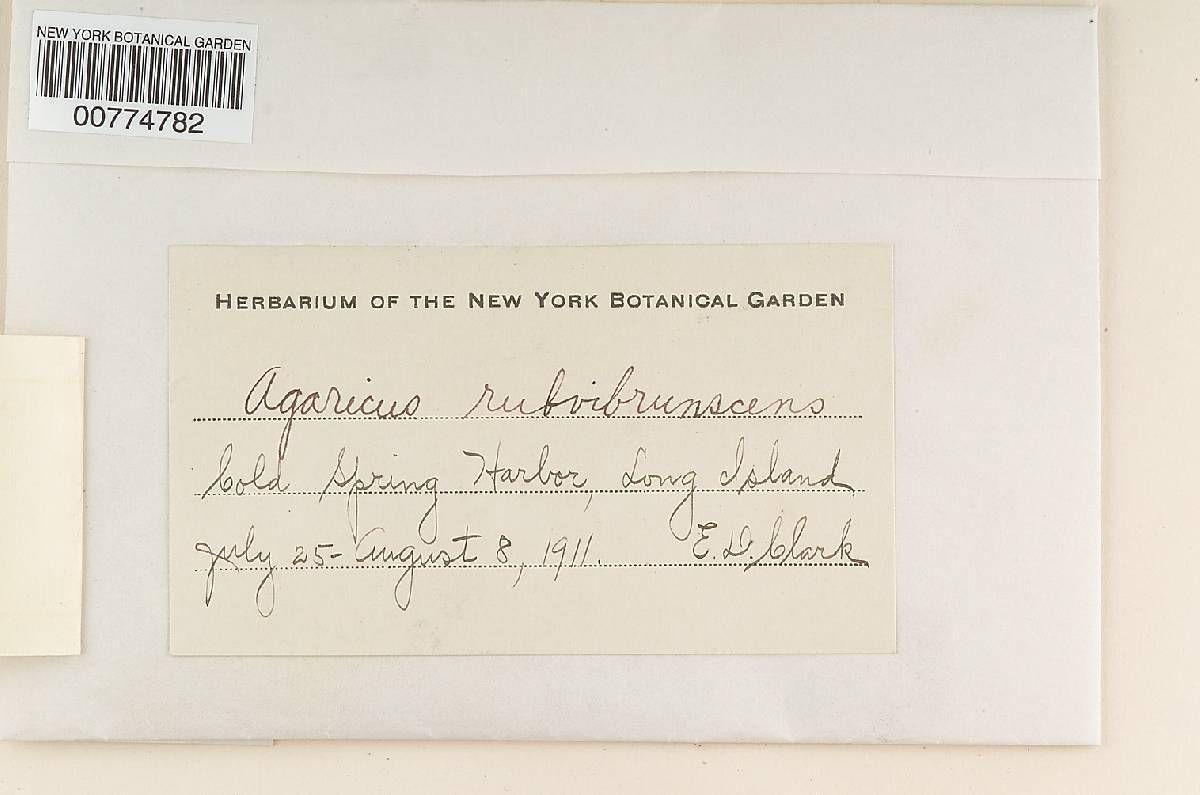 NEW YORK BOTANICAL GARDEN
00774782
HERBARIUM OF THE NEW YORK BOTANICAL GARDEN
Agaricus rubribrunscens
Cold Spring Harbor, Long Island
July 25-August 8, 1911. E. D. Clark